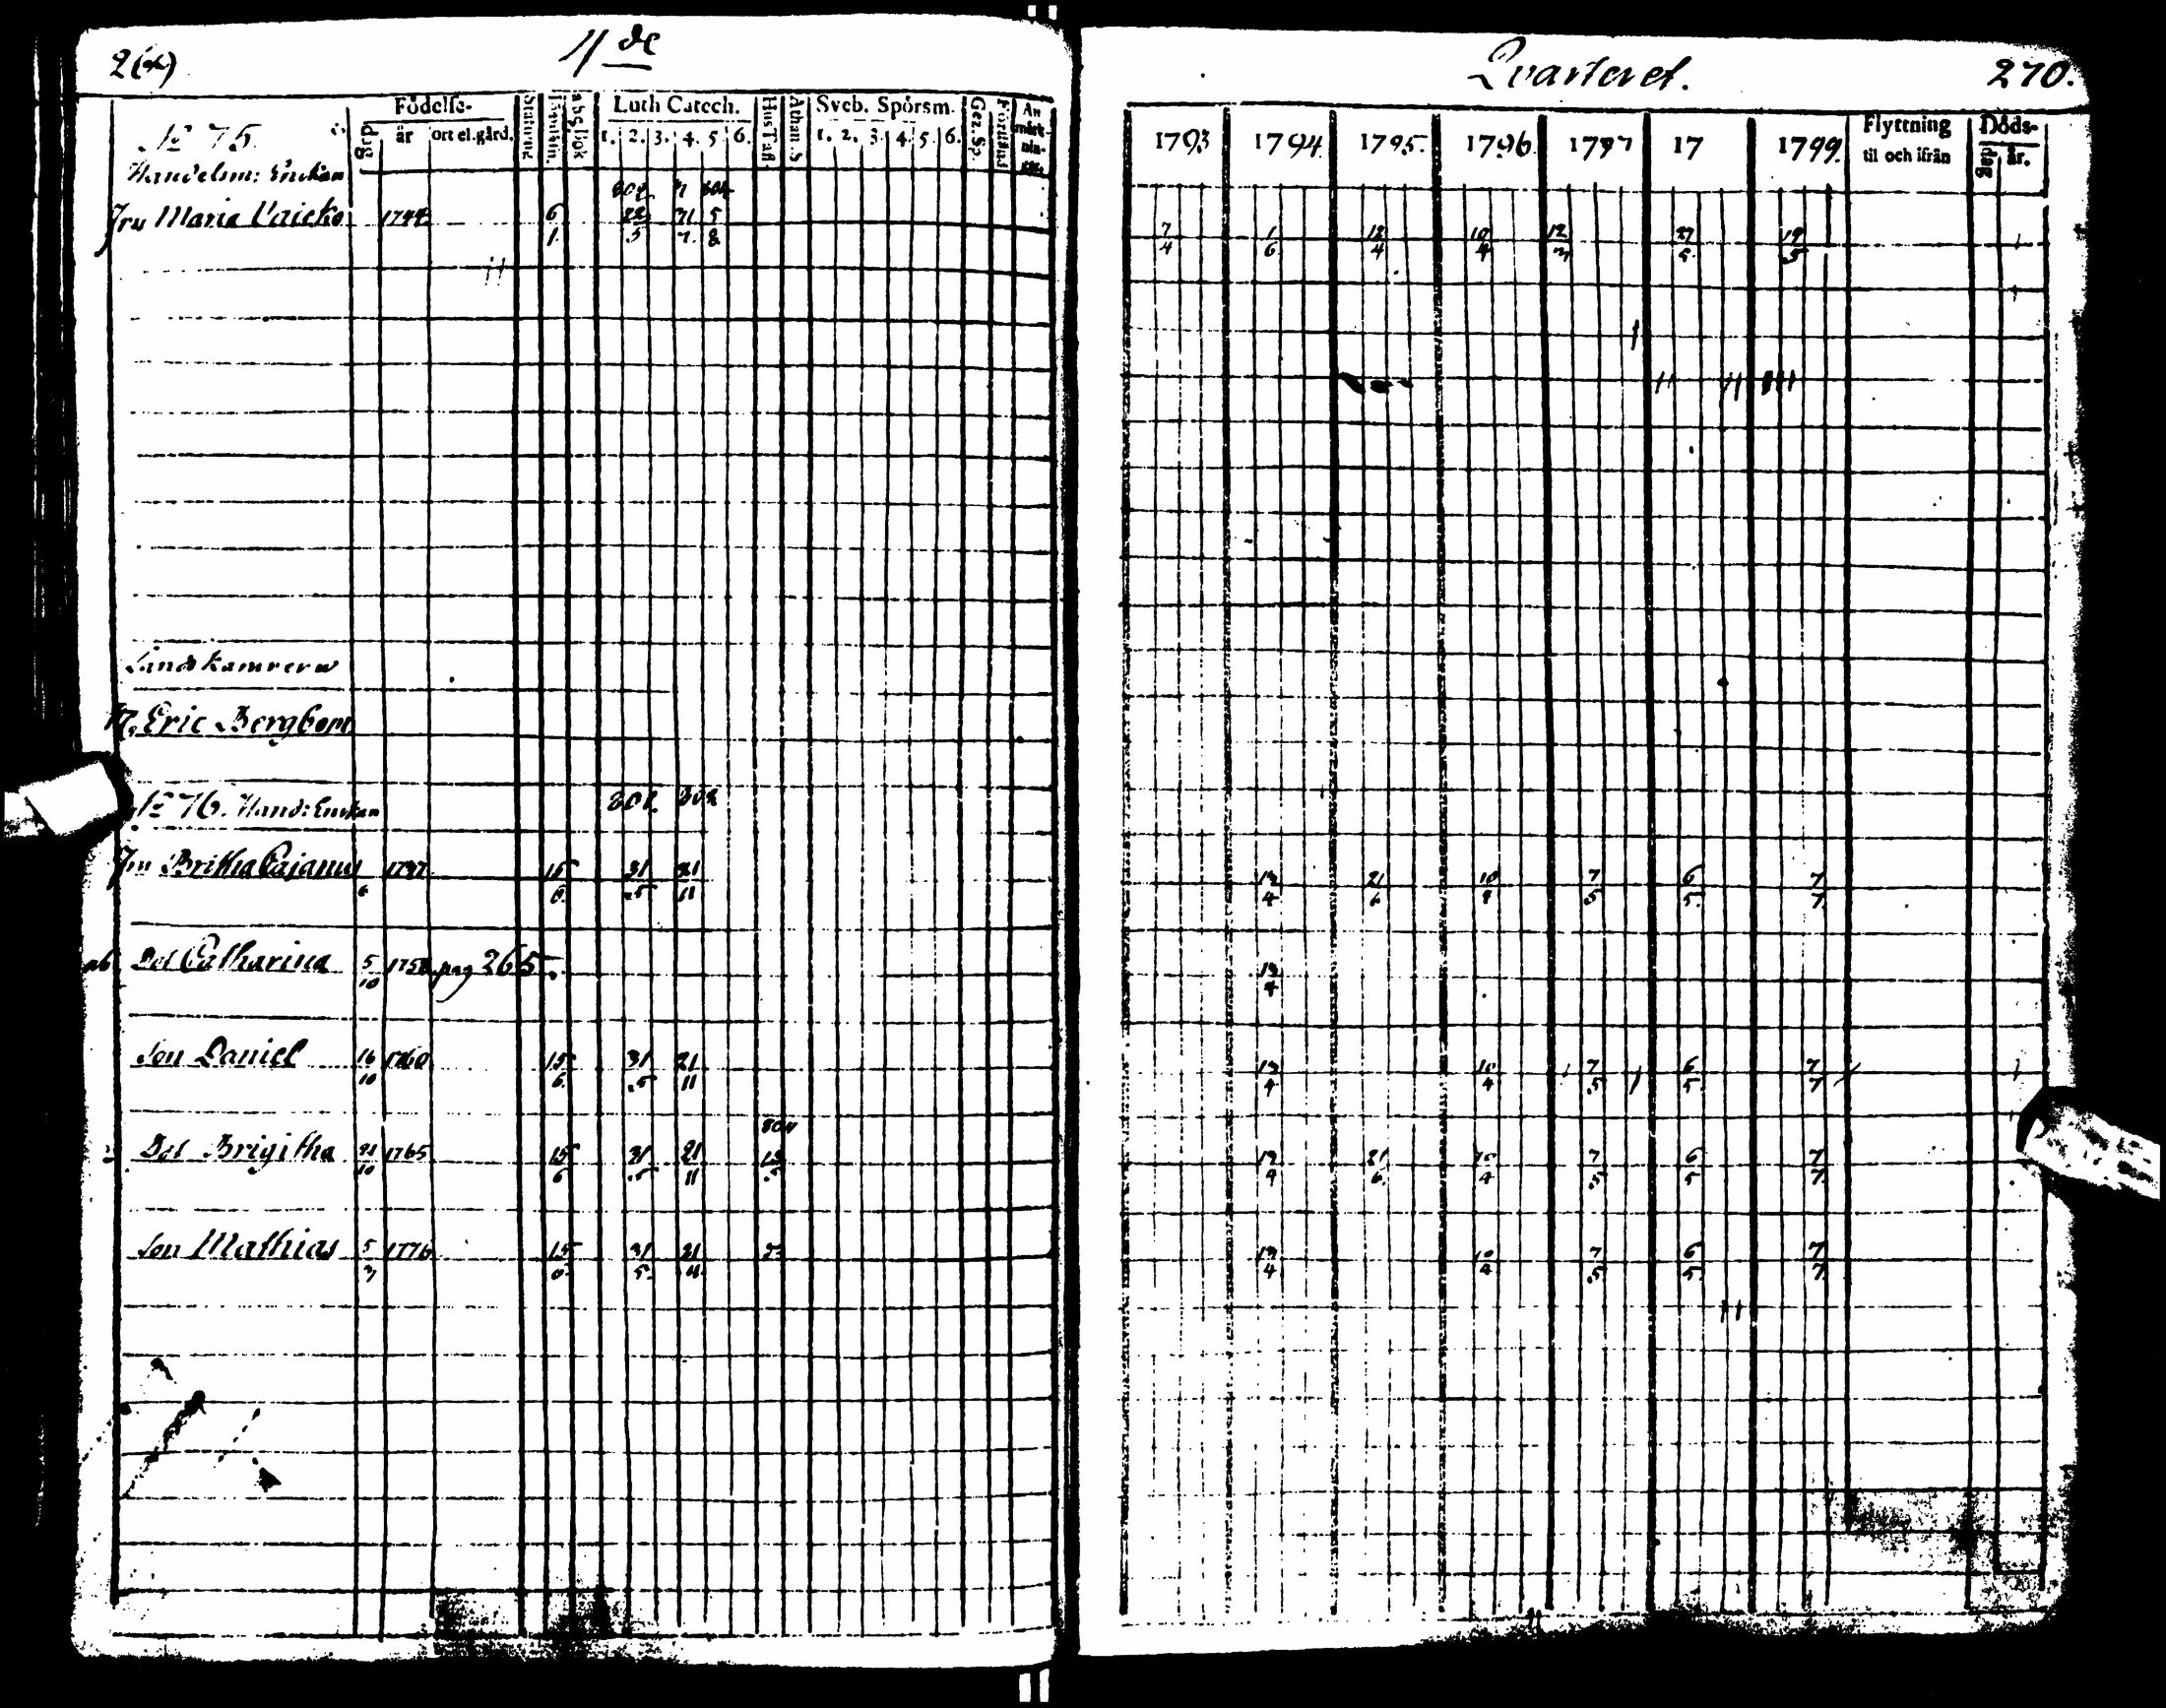 4 de Qvarteret. 270.
Födelse- Luth Catech. Hus Tafl Athan. S Sveb. Spörsm. Gez. Sp. Förstånd An märk- nin- gar.
dag år ort el. gård. 1. 2. 3. 4. 5 6. 1. 2. 3. 4. 5. 6.
1793 1794. 1795. 1796. 1797 17 1799. Flyttning til och ifrån Döds- dag år.
No 75.
Handelsm: Enkan
Fru Maria 1744 6/1 22/5 21/7 5/8 7/4 1/6 12/4 10/4 27/5 19/5
Landskamrerar
H. Eric Bergbom
No 76. Hand: Enkan 802 802
Fru Britha Cajanus 1737 15/6 31/5 21/11 19/4 21/6 10/4 7/5 6/5 7/7
Dot Catharina 5/10 1758 pag 265 19/4
Son Daniel 16/10 1760 15/6 31/5 21/11 19/4 10/4 7/5 6/5 7/7
804
Dot Brigitha 21/10 1765 15/6 31/5 21/11 19/4 21/6 10/4 7/5 6/5 7/7
Son Mathias 5/3 1776 15/6 31/5 21/11 19/4 10/4 7/5 6/5 7/7